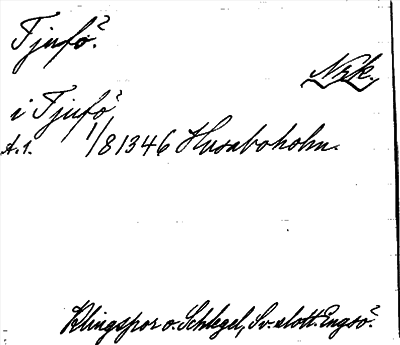 Tjufö?
Nrk.
i Tjufö?
A.1. 1/8 1346 Husaboholm.
Klingspor o. Schlegel, Sv. slott. Engsö?